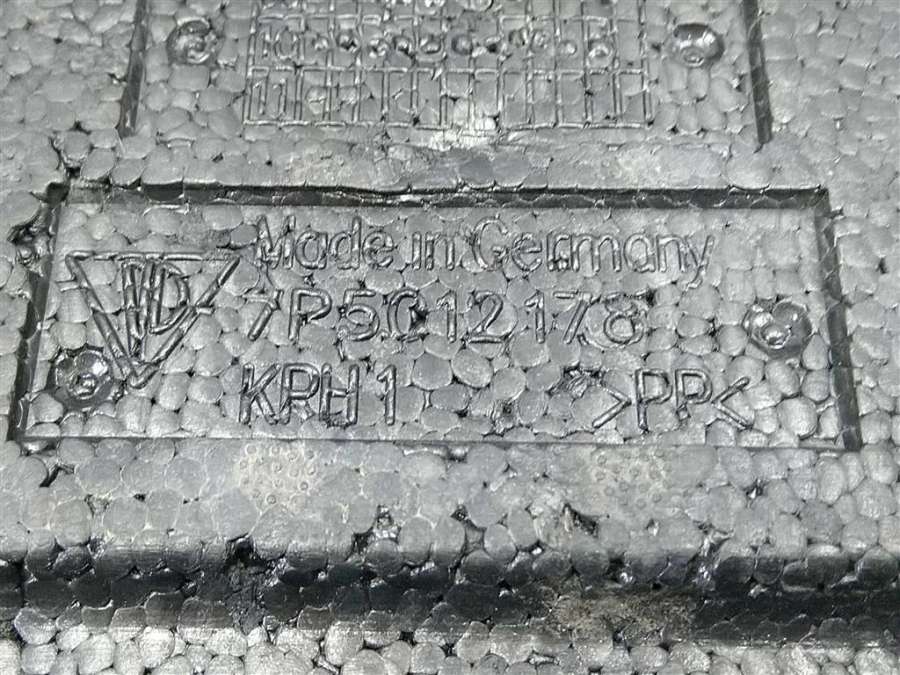 Made in Germany
7P5012178
KPH1
>PP<